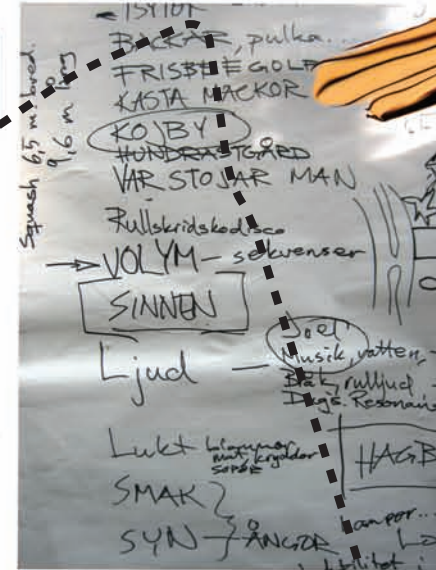 BACKAR, pulka...
FRISBEE GOLF
KASTA MACKOR
KOJBY
HUNDRASTGÅRD
VAR STOJAR MAN
Rullskridskodisco
VOLYM - sekvenser
SINNEN
Joel
Ljud - Musik, vatten,
Bråk, rulljud
Lukt blommor
mat, kryddor
HAGB
SMAK
SYN ÅNGOR
Lampor...
Squash 6,5 m bred.
9,6 m lång